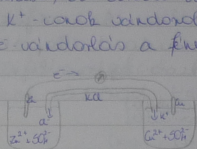 K⁺-ionok vándorol
e⁻ vándorlás a fém
e⁻ →
Zn
KCl
Cu
K⁺
Zn²⁺ + SO₄²⁻
Cu²⁺ + SO₄²⁻